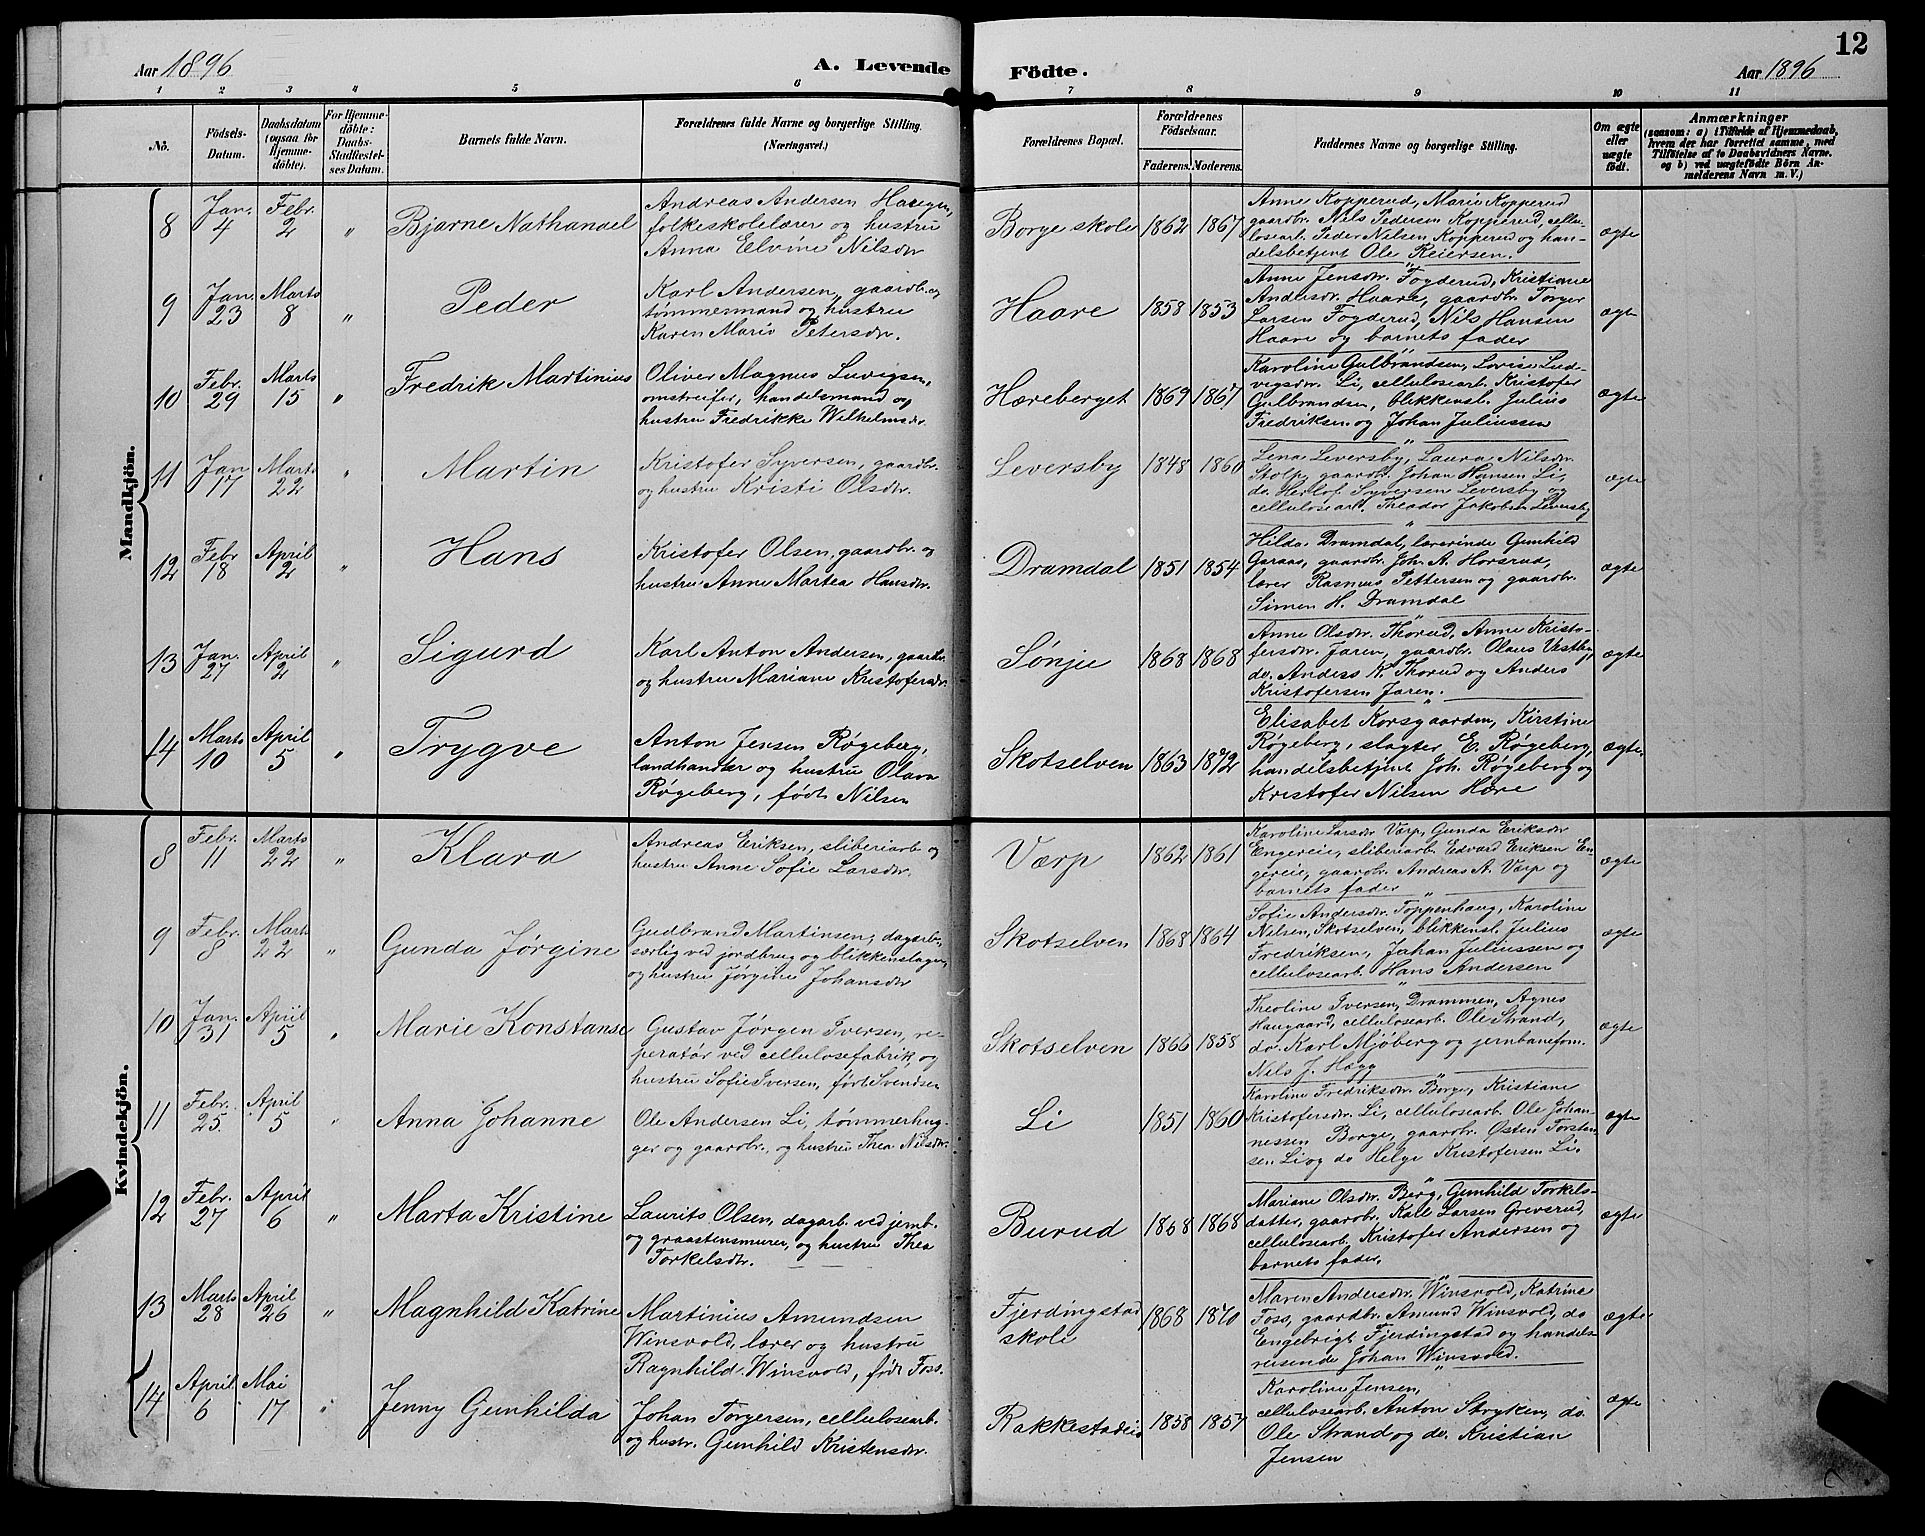 12
Aar 1896 A. Levende Födte. Aar 1896
1 2 3 4 5 6 7 8 9 10 11
No. Födsels-Datum. Daabsdatum (ogsaa for Hjemme-döbte). For Hjemme-döbte: Daabs-Stadfæstel-ses Datum. Barnets fulde Navn. Forældrenes fulde Navne og borgerlige Stilling. (Næringsvei.) Forældrenes Bopæl. Forældrenes Födselsaar. Faderens. Moderens. Faddernes Navne og borgerlige Stilling. Om ægte eller uægte födt. Anmærkninger (saasom: a) i Tilfælde af Hjemmedaab, hvem der har forrettet samme, med Tilföielse af to Daabsvidners Navne, og b) ved uægtefödte Börn An-melderens Navn m. V.)
Mandkjön.
8 Jan. 4 Febr. 2 " Bjarne Nathanael
Andreas Andersen
folkeskolelærer og hustru
Anna Elvine Nilsdr.
Borge skole 1862 1867
Anne Kopperud, Marie Kopperud
gaardbr. Nils Pedersen Kopperud, cellu-
losearb. Peder Nilsen Kopperud og han-
delsbetjent Ole Reiersen.
ægte
9 Jan. 23 Marts 8 " Peder
Karl Andersen, gaardb. og
tømmermand og hustru
Karen Marie Petersdr.
Haare 1858 1853
Anne Jensdr. Fogderud, Kristiane
Andersdr. Haare, gaardbr. Torger
Larsen Fogderud, Nils Hansen
Haare og barnets fader
ægte
10 Febr. 29 Marts 15 " Fredrik Martinius
Oliver Magnus Luvigsen,
omstreifer, handelsmand og
hustru Fredrikke Wilhelmsdr.
Hæreberget 1869 1867
Karoline Gulbrandsen, Lovise Lud-
vigsdr. Li, cellulosearb. Kristofer
Gulbrandsen, blikkensl. Julius
Fredriksen og Johan Juliussen
ægte
11 Jan. 17 Marts 22 " Martin
Kristofer Syversen, gaardbr.
og hustru Kristi Olsdr.
Leversby 1848 1860
Lena Leversby, Laura Nilsdr.
Stolp, gaardbr. Johan Hansen Li,
do. Herlof Syversen Leversby og
cellulosearb. Theodor Jakobsen Leversby
ægte
12 Febr. 18 April 2 " Hans
Kristofer Olsen, gaardbr. og
hustru Anne Martea Hansdr.
Dramdal 1851 1854
Hilda Dramdal, lærerinde Gunhild
Garaas, gaardbr. Joh. A. Horsrud,
lærer Rasmus Pettersen og gaardbr.
Simen H. Dramdal
ægte
13 Jan. 27 April 2 " Sigurd
Karl Anton Andersen, gaardbr.
og hustru Mariane Kristofersdr.
Sønju 1868 1868
Anne Olsdr. Thorud, Anne Kristo-
fersdr. Jaren, gaardbr. Olaus Vestby,
do. Anders K. Thorud og Anders
Kristofersen Jaren.
ægte
14 Marts 10 April 5 " Trygve
Anton Jensen Røgeberg,
landhandler og hustru Olava
Røgeberg, født Nilsen
Skotselven 1863 1872
Elisabet Korsgaarden, Kirstine
Røgeberg, slagter E. Røgeberg,
handelsbetjent Joh. Røgeberg og
Kristofer Nilsen Hære
ægte
Kvindekjön.
8 Febr. 11 Marts 22 " Klara
Andreas Eriksen, sliberiarb. og
hustru Anne Sofie Larsdr.
Værp 1862 1861
Karoline Larsdr. Værp, Gunda Eriksdr.
Engereie, sliberiarb. Edvard Eriksen En-
gereie, gaardbr. Andreas A. Værp og
barnets fader
ægte
9 Febr. 8 Marts 22 " Gunda Jørgine
Gudbrand Martinsen, dagarb.,
særlig ved jordbrug og blikkenslager,
og hustru Jørgine Johansdr
Skotselven 1868 1864
Sofie Andersdr. Toppenhaug, Karoline
Nilsen, Skotselven, blikkensl. Julius
Fredriksen, Johan Juliussen og
cellulosearb. Hans Andersen
ægte
10 Jan. 31 April 5 " Marie Konstanse
Gustav Jørgen Iversen, re-
peratør ved cellulosefabrik, og
hustru Sofie Iversen, født Svendsen
Skotselven 1866 1858
Theoline Iversen, Drammen, Agnes
Haugaard, cellulosearb. Ole Strand,
do. Karl Mjøberg og jernbanefom.
Nils J. Hægg
ægte
11 Febr. 25 April 5 " Anna Johanne
Ole Andersen Li, tømmerhug-
ger og gaardbr., og hustru Thea Nilsdr.
Li 1851 1860
Karoline Fredriksdr. Borge, Kristiane
Kristofersdr. Li, cellulosearb. Ole Johan-
nessen Borge, gaardbr. Østen Torsten-
sen Li og do Helge Kristofersen Li.
ægte
12 Febr. 27 April 6 " Marta Kristine
Laurits Olsen, dagarb. ved jernb.
og graastensmurer, og hustru Thea
Torkelsdr.
Burud 1868 1868
Mariane Olsdr. Berg, Gunhild Torkels-
datter, gaardbr. Kall Larsen Grevsrud,
cellulosearb. Kristofer Andersen og
barnets fader.
ægte
13 Marts 28 April 26 " Magnhild Katrine
Martinius Amundsen
Winsvold, lærer og hustru
Ragnhild Winsvold, født Foss.
Fjerdingstad skole 1868 1870
Maren Andersdr. Winsvold, Katrine
Foss, gaardbr. Amund Winsvold, do
Engebrigt Fjerdingstad og handels-
reisende Johan Winsvold.
ægte
14 April 6 Mai 17 " Jenny Gunhilda
Johan Torgersen, cellulosearb.
og hustr. Gunhild Kristensdr.
Rakkestadeie 1858 1857
Karoline Jensen,
cellulosearb. Anton Stryken, do.
Ole Strand og do. Kristian
Jensen
ægte